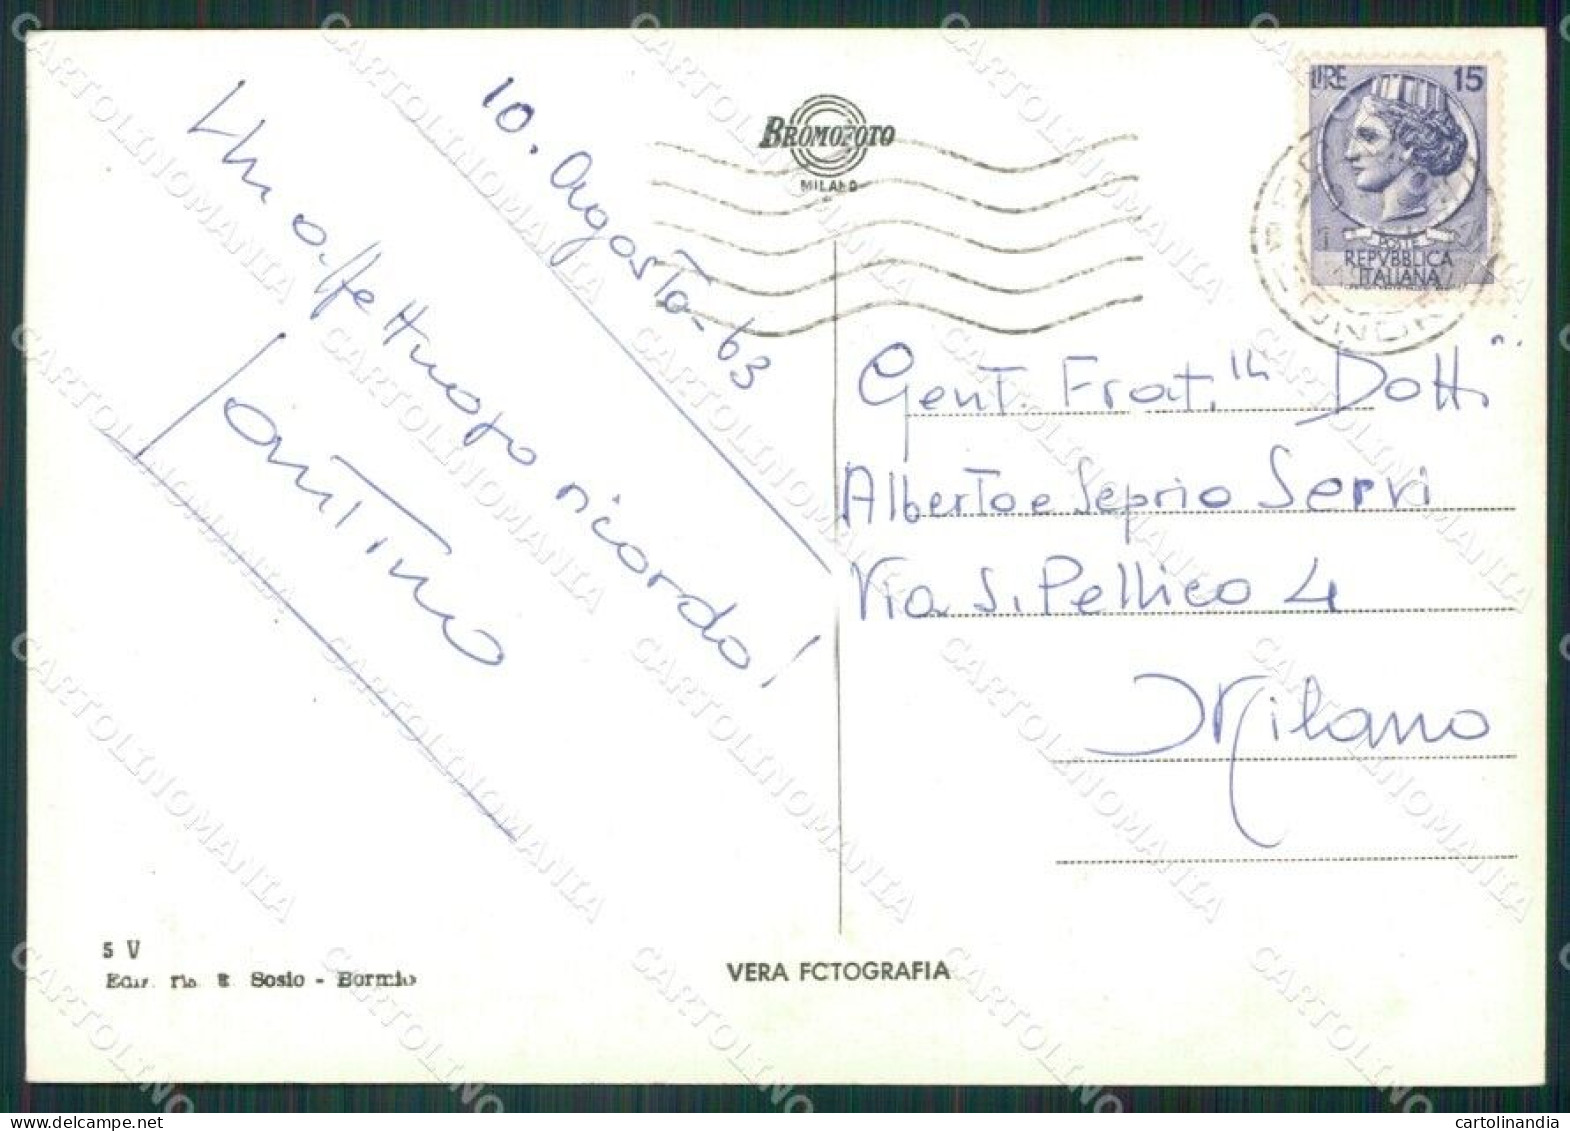 BROMOFOTO
MILANO
LIRE 15
POSTE
REPVBBLICA
ITALIANA
10. Agosto - 63
Un affettuoso ricordo!
Santino
Gent. Frat.lli Dott.
Alberto e Seprio Servi
Via S. Pellico 4
Milano
5 V
Sosio - Bormio
VERA FCTOGRAFIA
CARTOLINOMANIA
cartolinandia